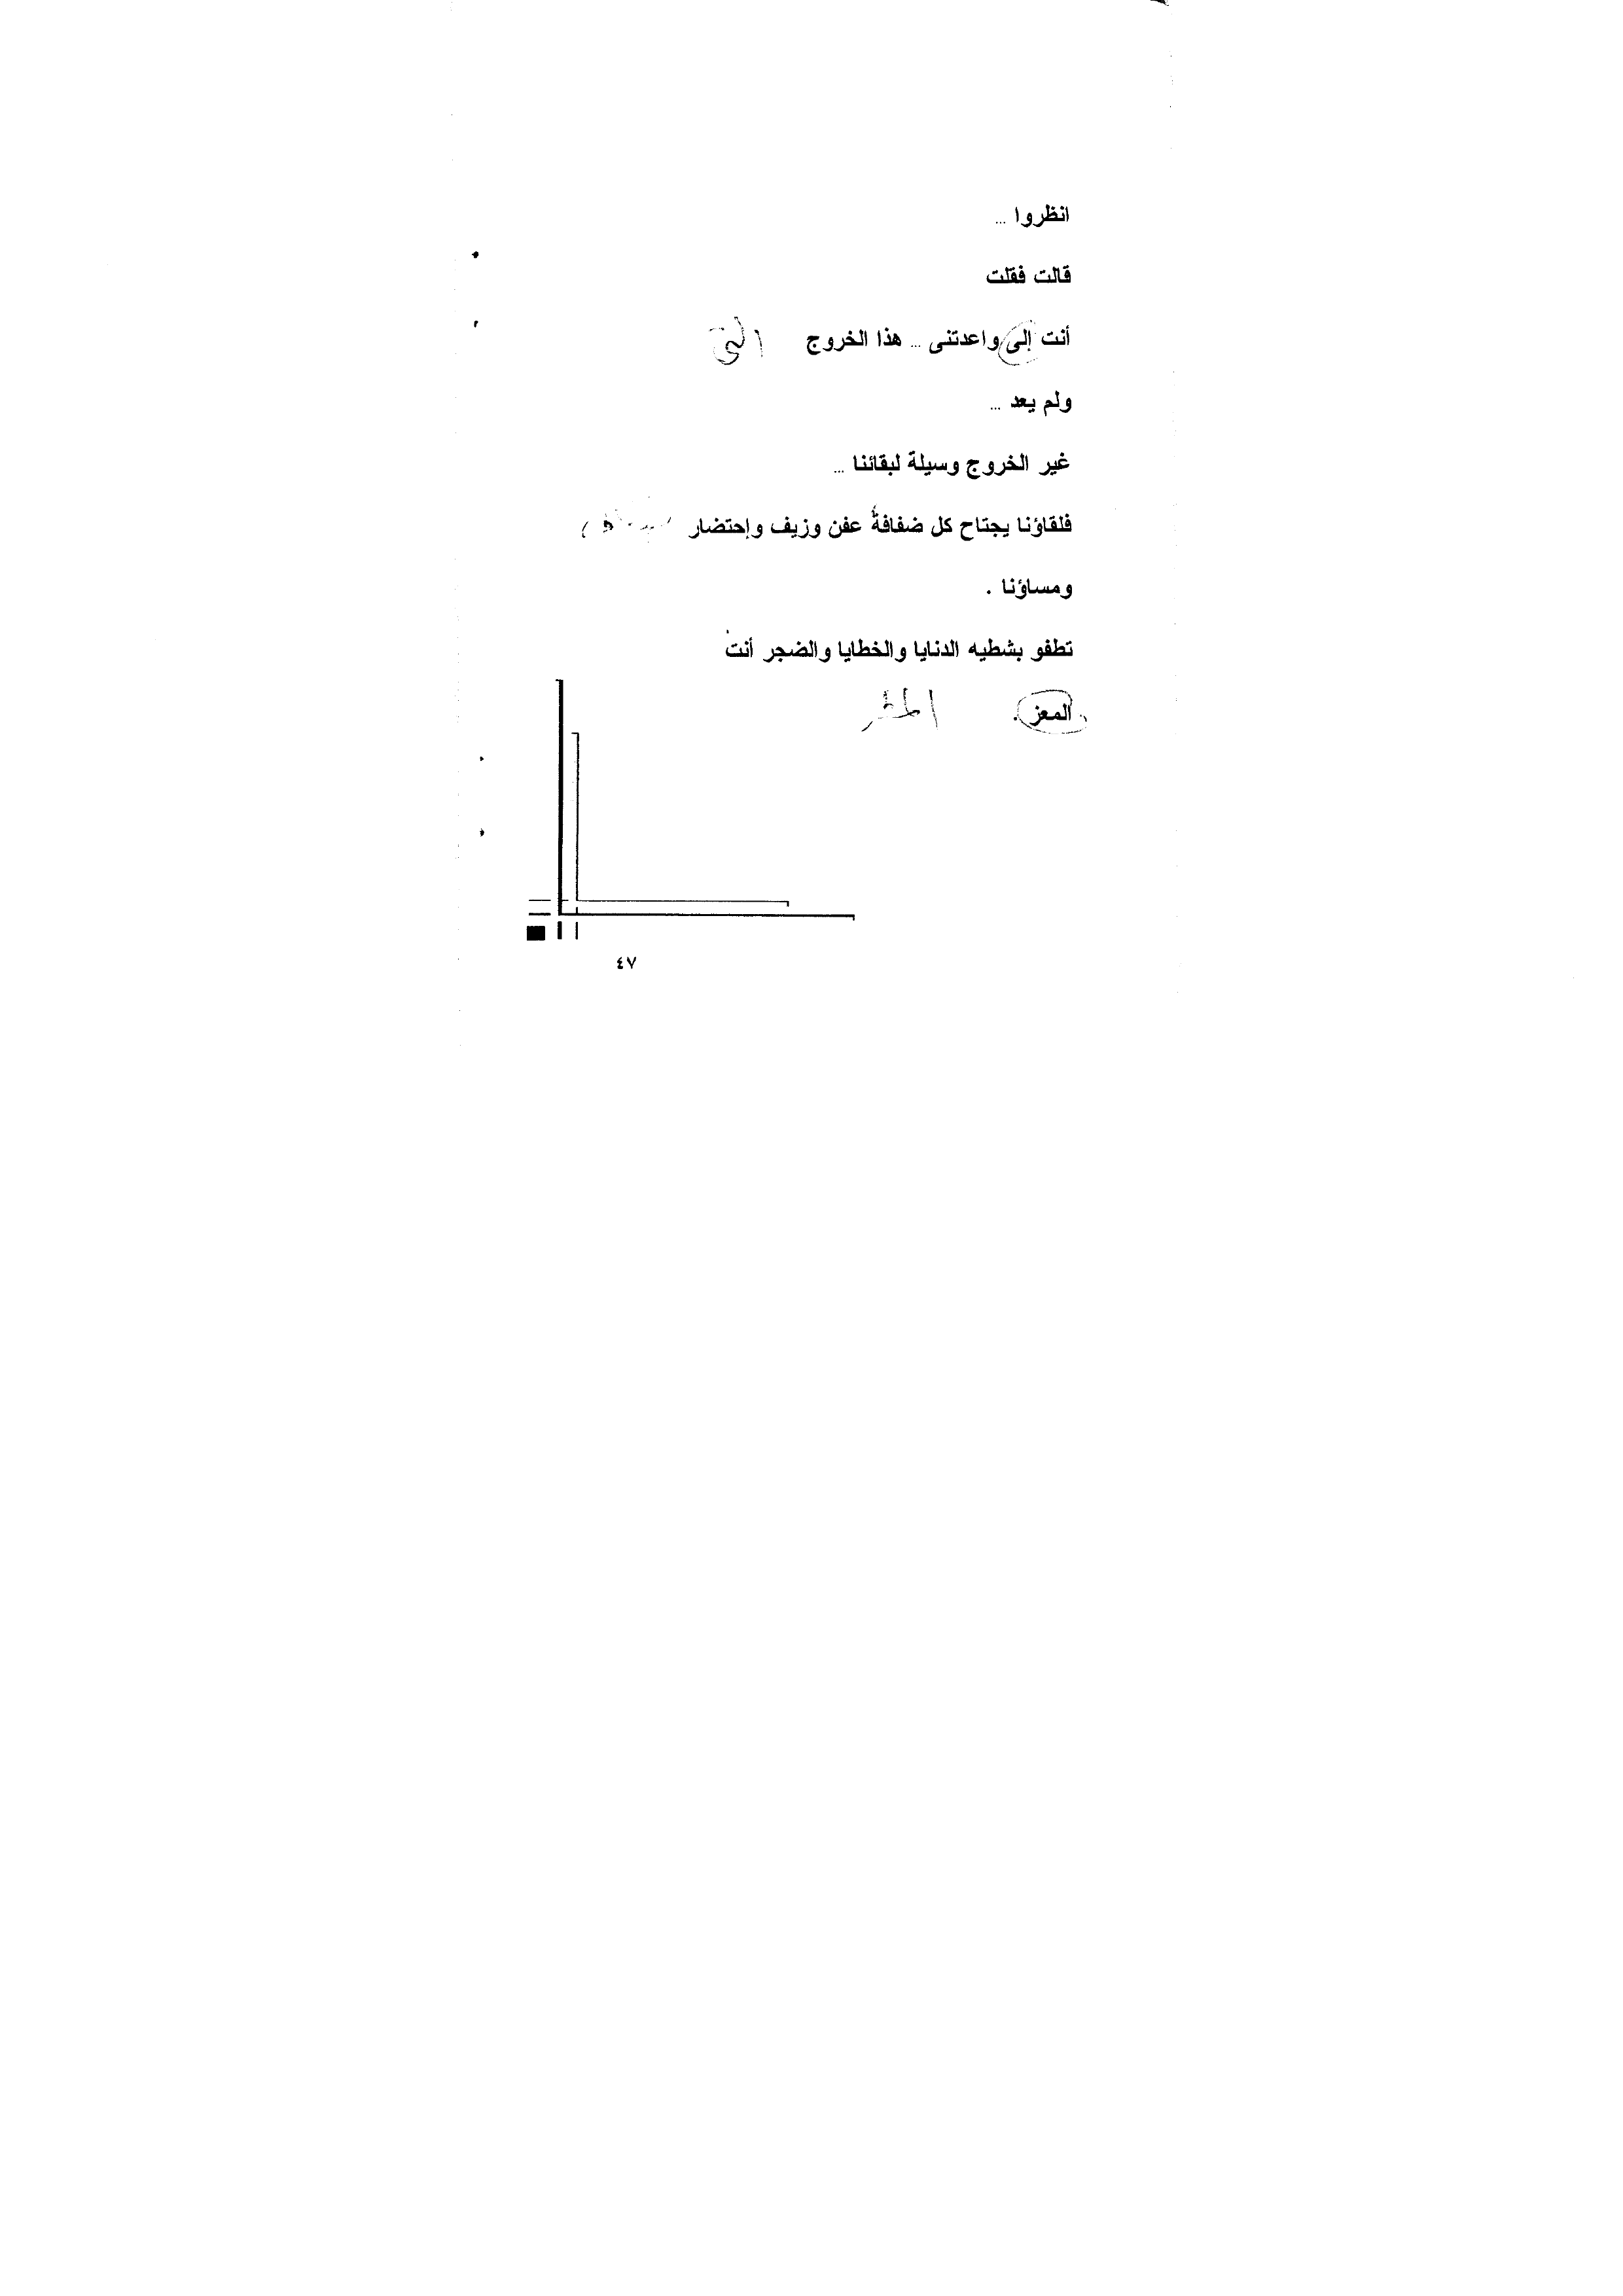 انظروا ...
قالت فقلت
أنت إلى واعدتنى ... هذا الخروج التى
ولم يعد ...
غير الخروج وسيلة لبقائنا ...
فلقاؤنا يجتاح كل ضفافةُ عفن وزيف وإحتضار
ومساؤنا .
تطفو بشطيه الدنايا والخطايا والضجر أنت
المعز .
٤٧